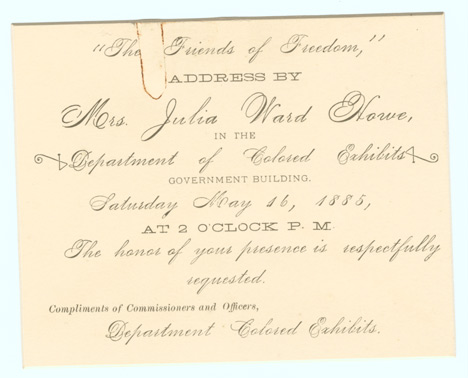 "The Friends of Freedom,"
ADDRESS BY
Mrs. Julia Ward Howe,
IN THE
Department of Colored Exhibits
GOVERNMENT BUILDING.
Saturday May 16, 1885,
AT 2 O'CLOCK P. M.
The honor of your presence is respectfully
requested.
Compliments of Commissioners and Officers,
Department Colored Exhibits.